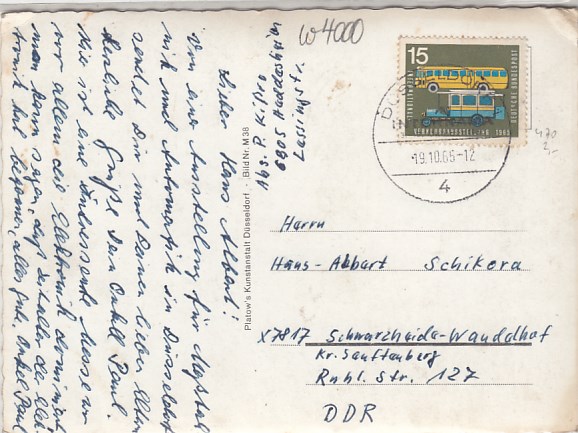 W4000
Abs. P. Kipro
6805 Heddesheim
Lessingstr.
Lieber Hans Albert!
Von einer Ausstellung für Meßtech
nik und Automatik in Düsseldorf
sendet Dir und Deinen lieben Eltern
herzliche Grüße Dein Onkel Paul.
Hier ist eine Interessante Messe wo
vor allem die Elektronik dominiert
man kann sagen, daß Zeitalter der Elek
tronik hat begonnen, alles Gute Onkel Paul
Platow's Kunstanstalt Düsseldorf - Bild Nr. M 38
15
DEUTSCHE BUNDESPOST
VERKEHRSAUSSTELLUNG 1965
19.10.65-12
4
470
2,-
Herrn
Hans-Albart Schikora
X7817 Schwarzheide-Wandelhof
Kr. Senftenberg
Ruhl. Str. 127
DDR